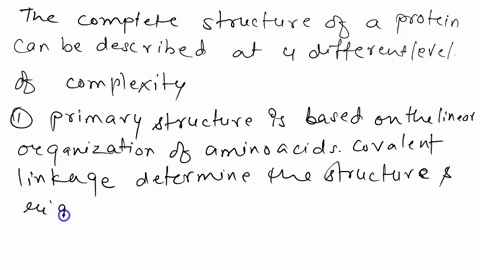 The complete structure of a protein
can be described at 4 different level.
of complexity
① primary structure is based on the linear
organization of aminoacids. Covalent
linkage determine the structure &